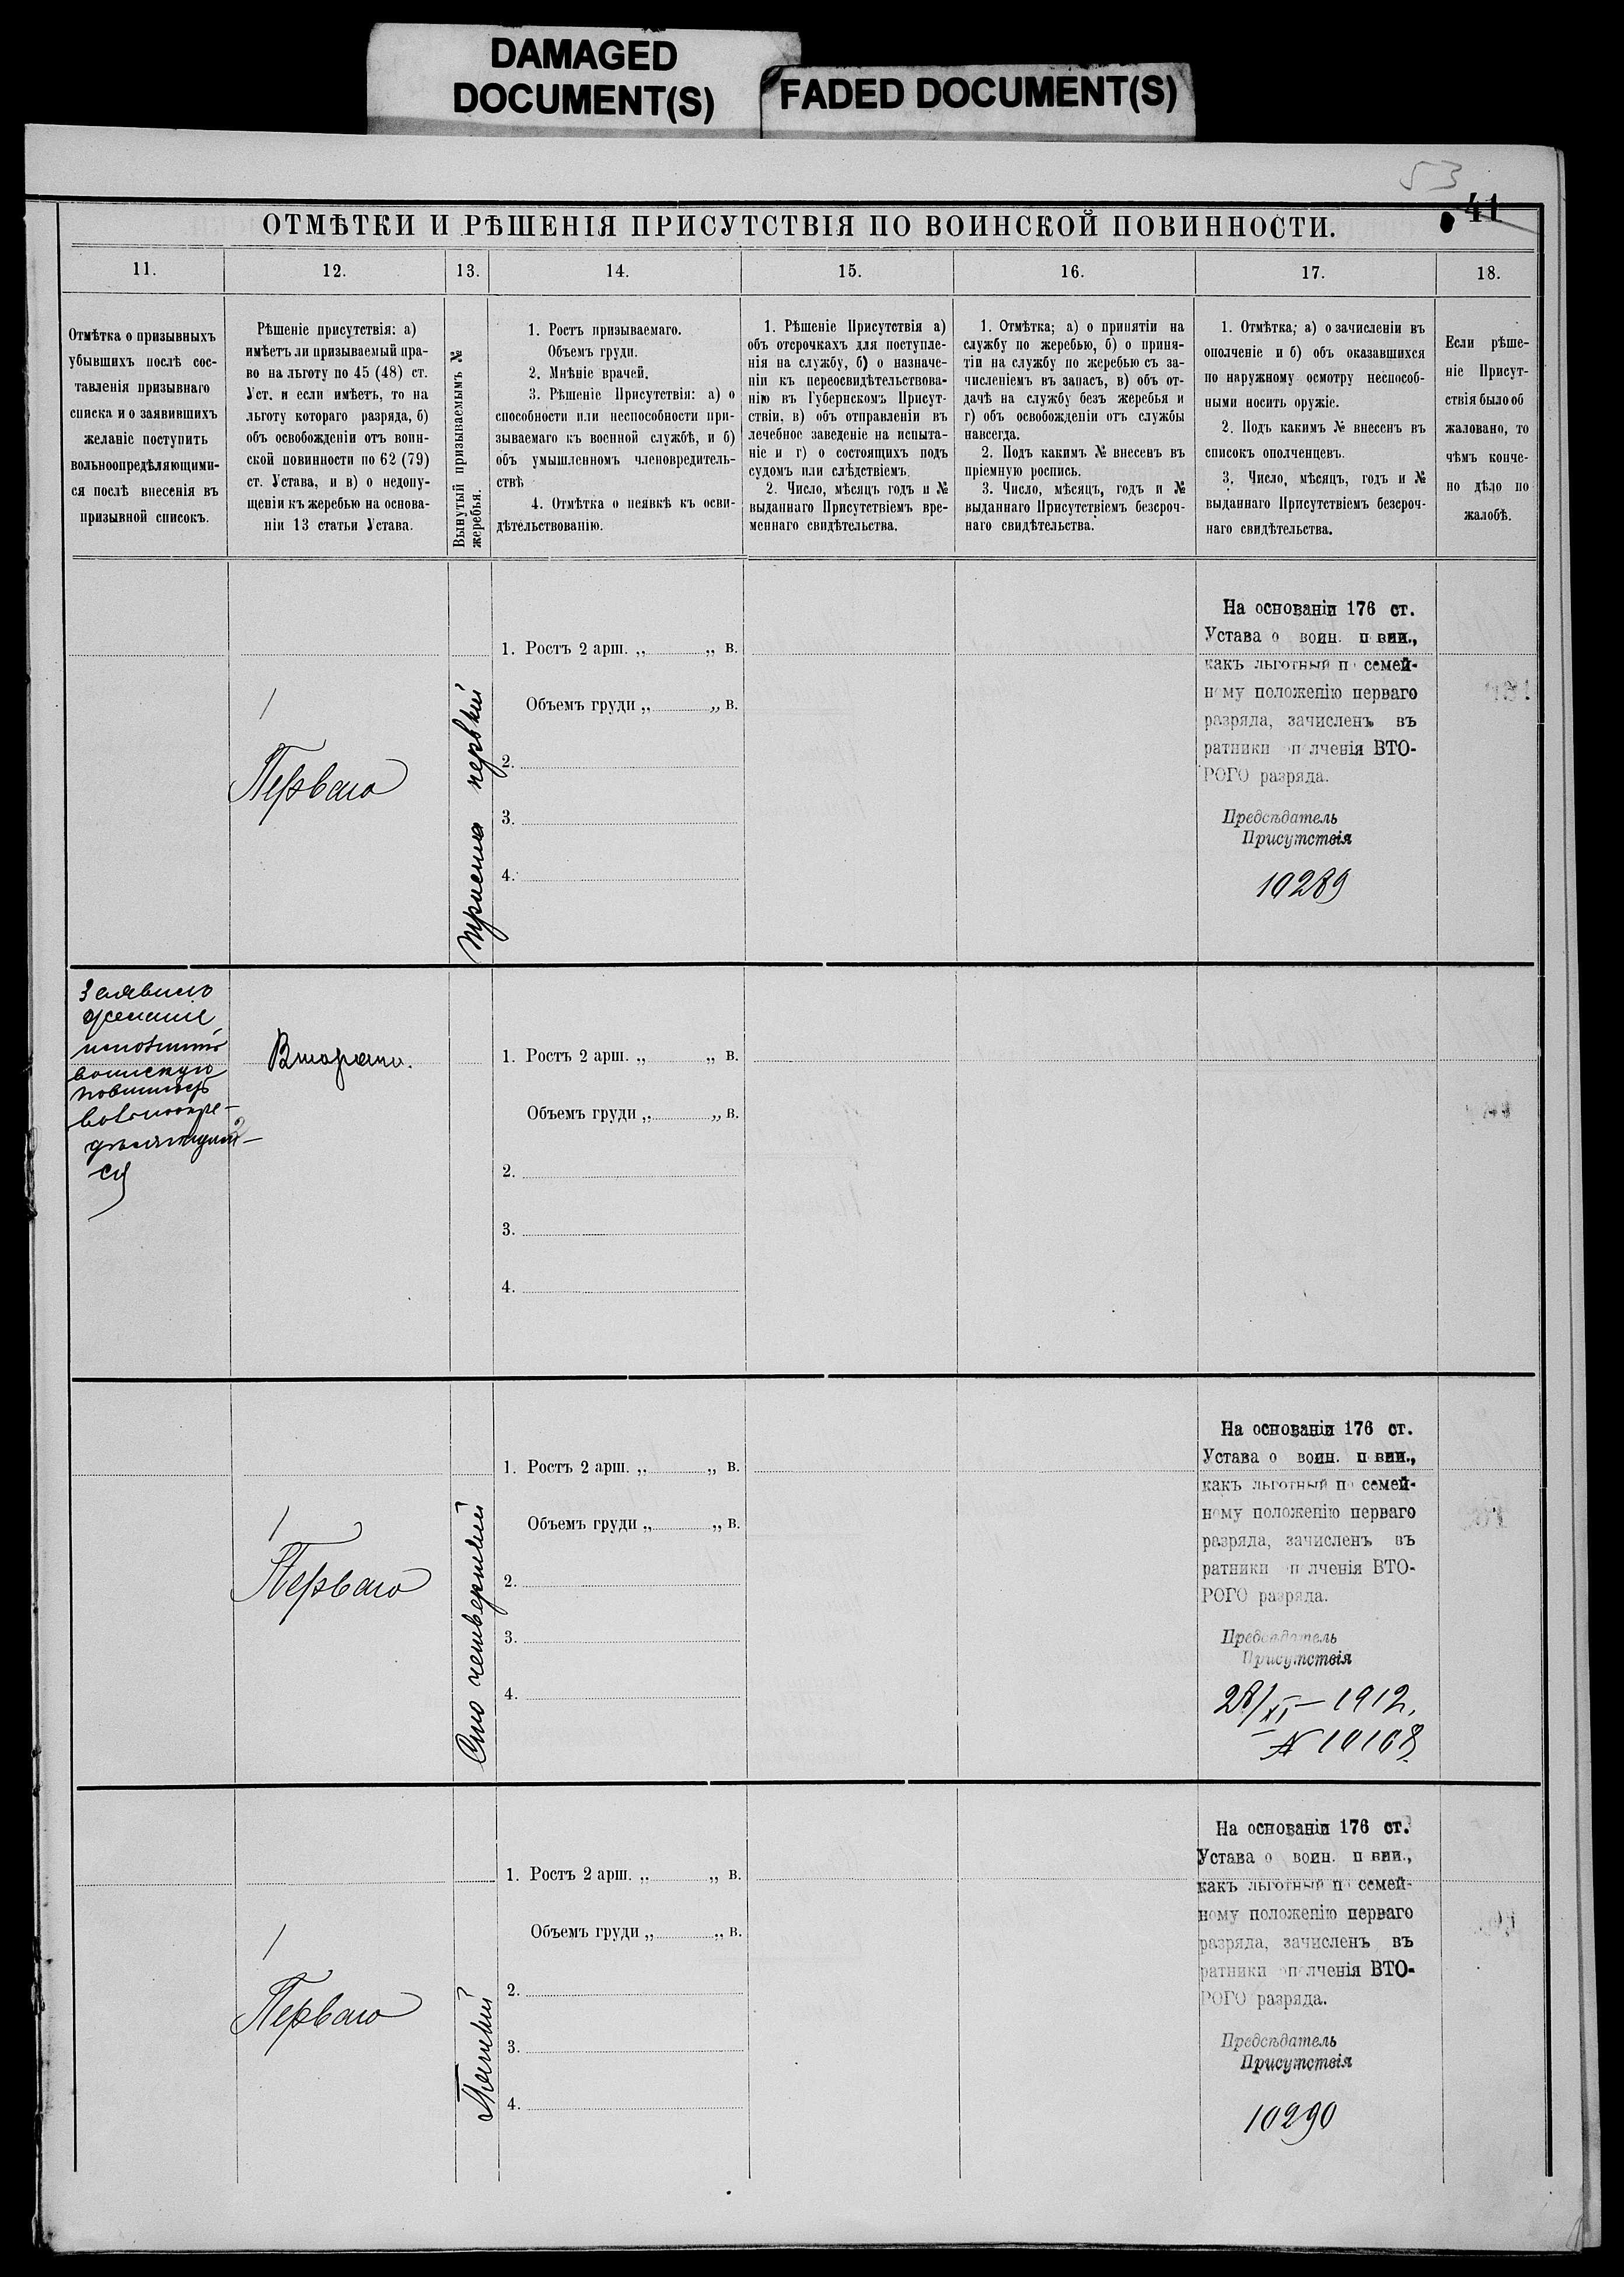 DAMAGED
DOCUMENT(S)
FADED DOCUMENT(S)
53
41
ОТМѢТКИ И РѢШЕНІЯ ПРИСУТСТВІЯ ПО ВОИНСКОЙ ПОВИННОСТИ.
11.
12.
13.
14.
15.
16.
17.
18.
Отмѣтка о призывныхъ
убывшихъ послѣ сос-
тавленія призывнаго
списка и о заявившихъ
желаніе поступить
вольноопредѣляющими-
ся послѣ внесенія въ
призывной списокъ.
Рѣшеніе присутствія: а)
имѣетъ ли призываемый пра-
во на льготу по 45 (48) ст.
Уст. и если имѣетъ, то на
льготу котораго разряда, б)
объ освобожденіи отъ воин-
ской повинности по 62 (79)
ст. Устава, и в) о недопу-
щеніи къ жеребью на основа-
ніи 13 статьи Устава.
Вынутый призываемымъ №
жеребья.
1. Ростъ призываемаго.
Объемъ груди.
2. Мнѣніе врачей.
3. Рѣшеніе Присутствія: а) о
способности или неспособности при-
зываемаго къ военной службѣ, и б)
объ умышленномъ членовредитель-
ствѣ
4. Отмѣтка о неявкѣ къ осви-
дѣтельствованію.
1. Рѣшеніе Присутствія а)
объ отсрочкахъ для поступле-
нія на службу, б) о назначе-
ніи къ переосвидѣтельствова-
нію въ Губернскомъ Присут-
ствіи, в) объ отправленіи въ
лечебное заведеніе на испыта-
ніе и г) о состоящихъ подъ
судомъ или слѣдствіемъ
2. Число, мѣсяцъ годъ и №
выданнаго Присутствіемъ вре-
меннаго свидѣтельства.
1. Отмѣтка; а) о принятіи на
службу по жеребью, б) о приня-
тіи на службу по жеребью съ за-
численіемъ въ запасъ, в) объ от-
дачѣ на службу безъ жеребья и
г) объ освобожденіи отъ службы
навсегда.
2. Подъ какимъ № внесенъ въ
пріемную роспись.
3. Число, мѣсяцъ, годъ и №
выданнаго Присутствіемъ безсроч-
наго свидѣтельства.
1. Отмѣтка; а) о зачисленіи въ
ополченіе и б) объ оказавшихся
по наружному осмотру неспособ-
ными носить оружіе.
2. Подъ какимъ № внесенъ въ
списокъ ополченцевъ.
3. Число, мѣсяцъ, годъ и №
выданнаго Присутствіемъ безсроч-
наго свидѣтельства.
Если рѣше-
ніе Присут-
ствія было об
жаловано, то
чѣмъ конче-
но дѣло по
жалобѣ.
1
Перваго
Триста первый
1. Ростъ 2 арш. „ „ в.
Объемъ груди „ „ в.
2.
3.
4.
На основаніи 176 ст.
Устава о воин. повин.,
какъ льготный по семей-
ному положенію перваго
разряда, зачисленъ въ
ратники ополченія ВТО-
РОГО разряда.
Предсѣдатель
Присутствія
10289
Заявилъ
желаніе
исполнить
воинскую
повинность
вольноопре-
дѣляющим-
ся
Втораго.
2
1. Ростъ 2 арш. „ „ в.
Объемъ груди „ „ в.
2.
3.
4.
1
Перваго
Сто четвертый
1. Ростъ 2 арш. „ „ в.
Объемъ груди „ „ в.
2.
3.
4.
На основаніи 176 ст.
Устава о воин. повин.,
какъ льготный по семей-
ному положенію перваго
разряда, зачисленъ въ
ратники ополченія ВТО-
РОГО разряда.
Предсѣдатель
Присутствія
28/XI – 1912.
№ 10168.
1
Перваго
1. Ростъ 2 арш. „ „ в.
Объемъ груди „ „ в.
2.
3.
4.
На основаніи 176 ст.
Устава о воин. повин.,
какъ льготный по семей-
ному положенію перваго
разряда, зачисленъ въ
ратники ополченія ВТО-
РОГО разряда.
Предсѣдатель
Присутствія
10290